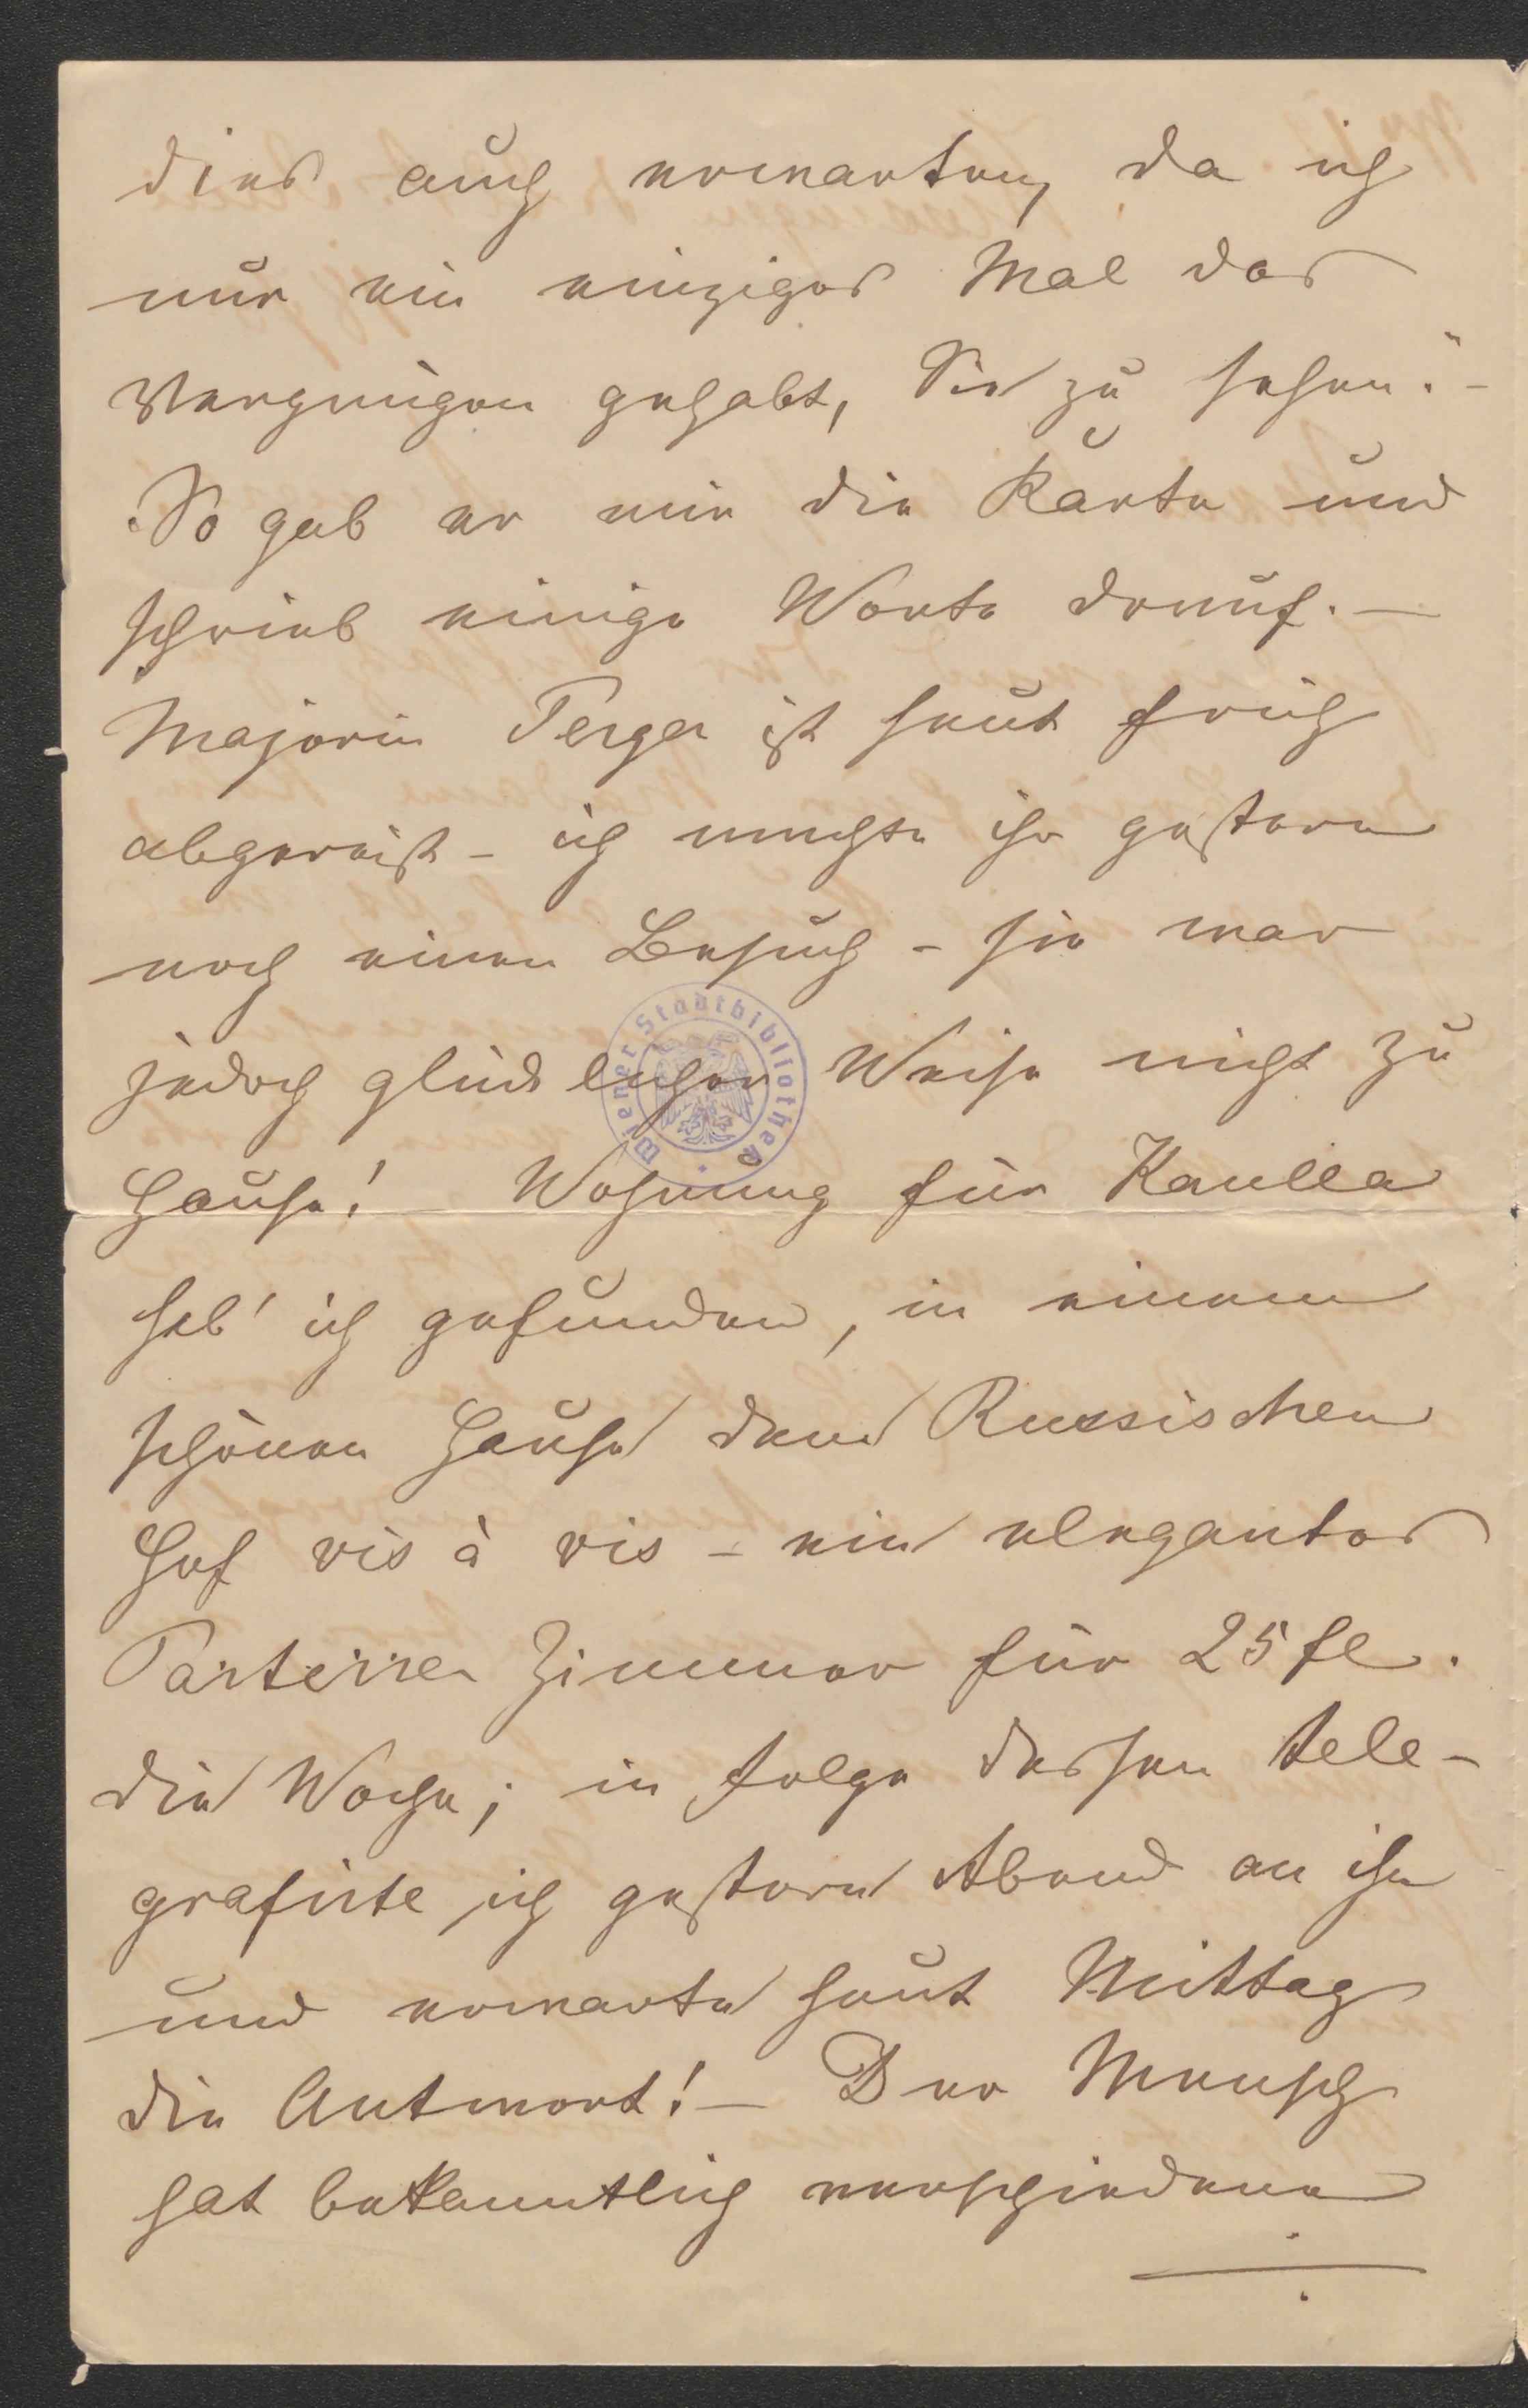 dies auch erwarten, da ich
nur ein einziges Mal das
Vergnügen gehabt, Sie zu sehen." -
So gab er mir die Karte und
schrieb einige Worte drauf. —
Majorin Perger ist heut früh
abgereist - ich machte ihr gestern
noch einen Besuch - sie war
jedoch glücklicher Weise nicht zu
Hause! Wohnung für Kaulla
hab' ich gefunden, in einem
schönen Hause dem Russischen
Hof vis à vis - ein elegantes
Parterre Zimmer für 25 fl.
die Woche; in Folge dessen tele-
grafirte ich gestern Abend an ihn
und erwarte heut Mittag
die Antwort! — Der Mensch
hat bekanntlich verschiedene
Wiener Stadtbibliothek